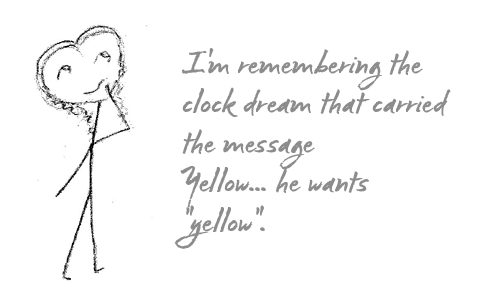 I'm remembering the
clock dream that carried
the message
Yellow... he wants
"yellow".